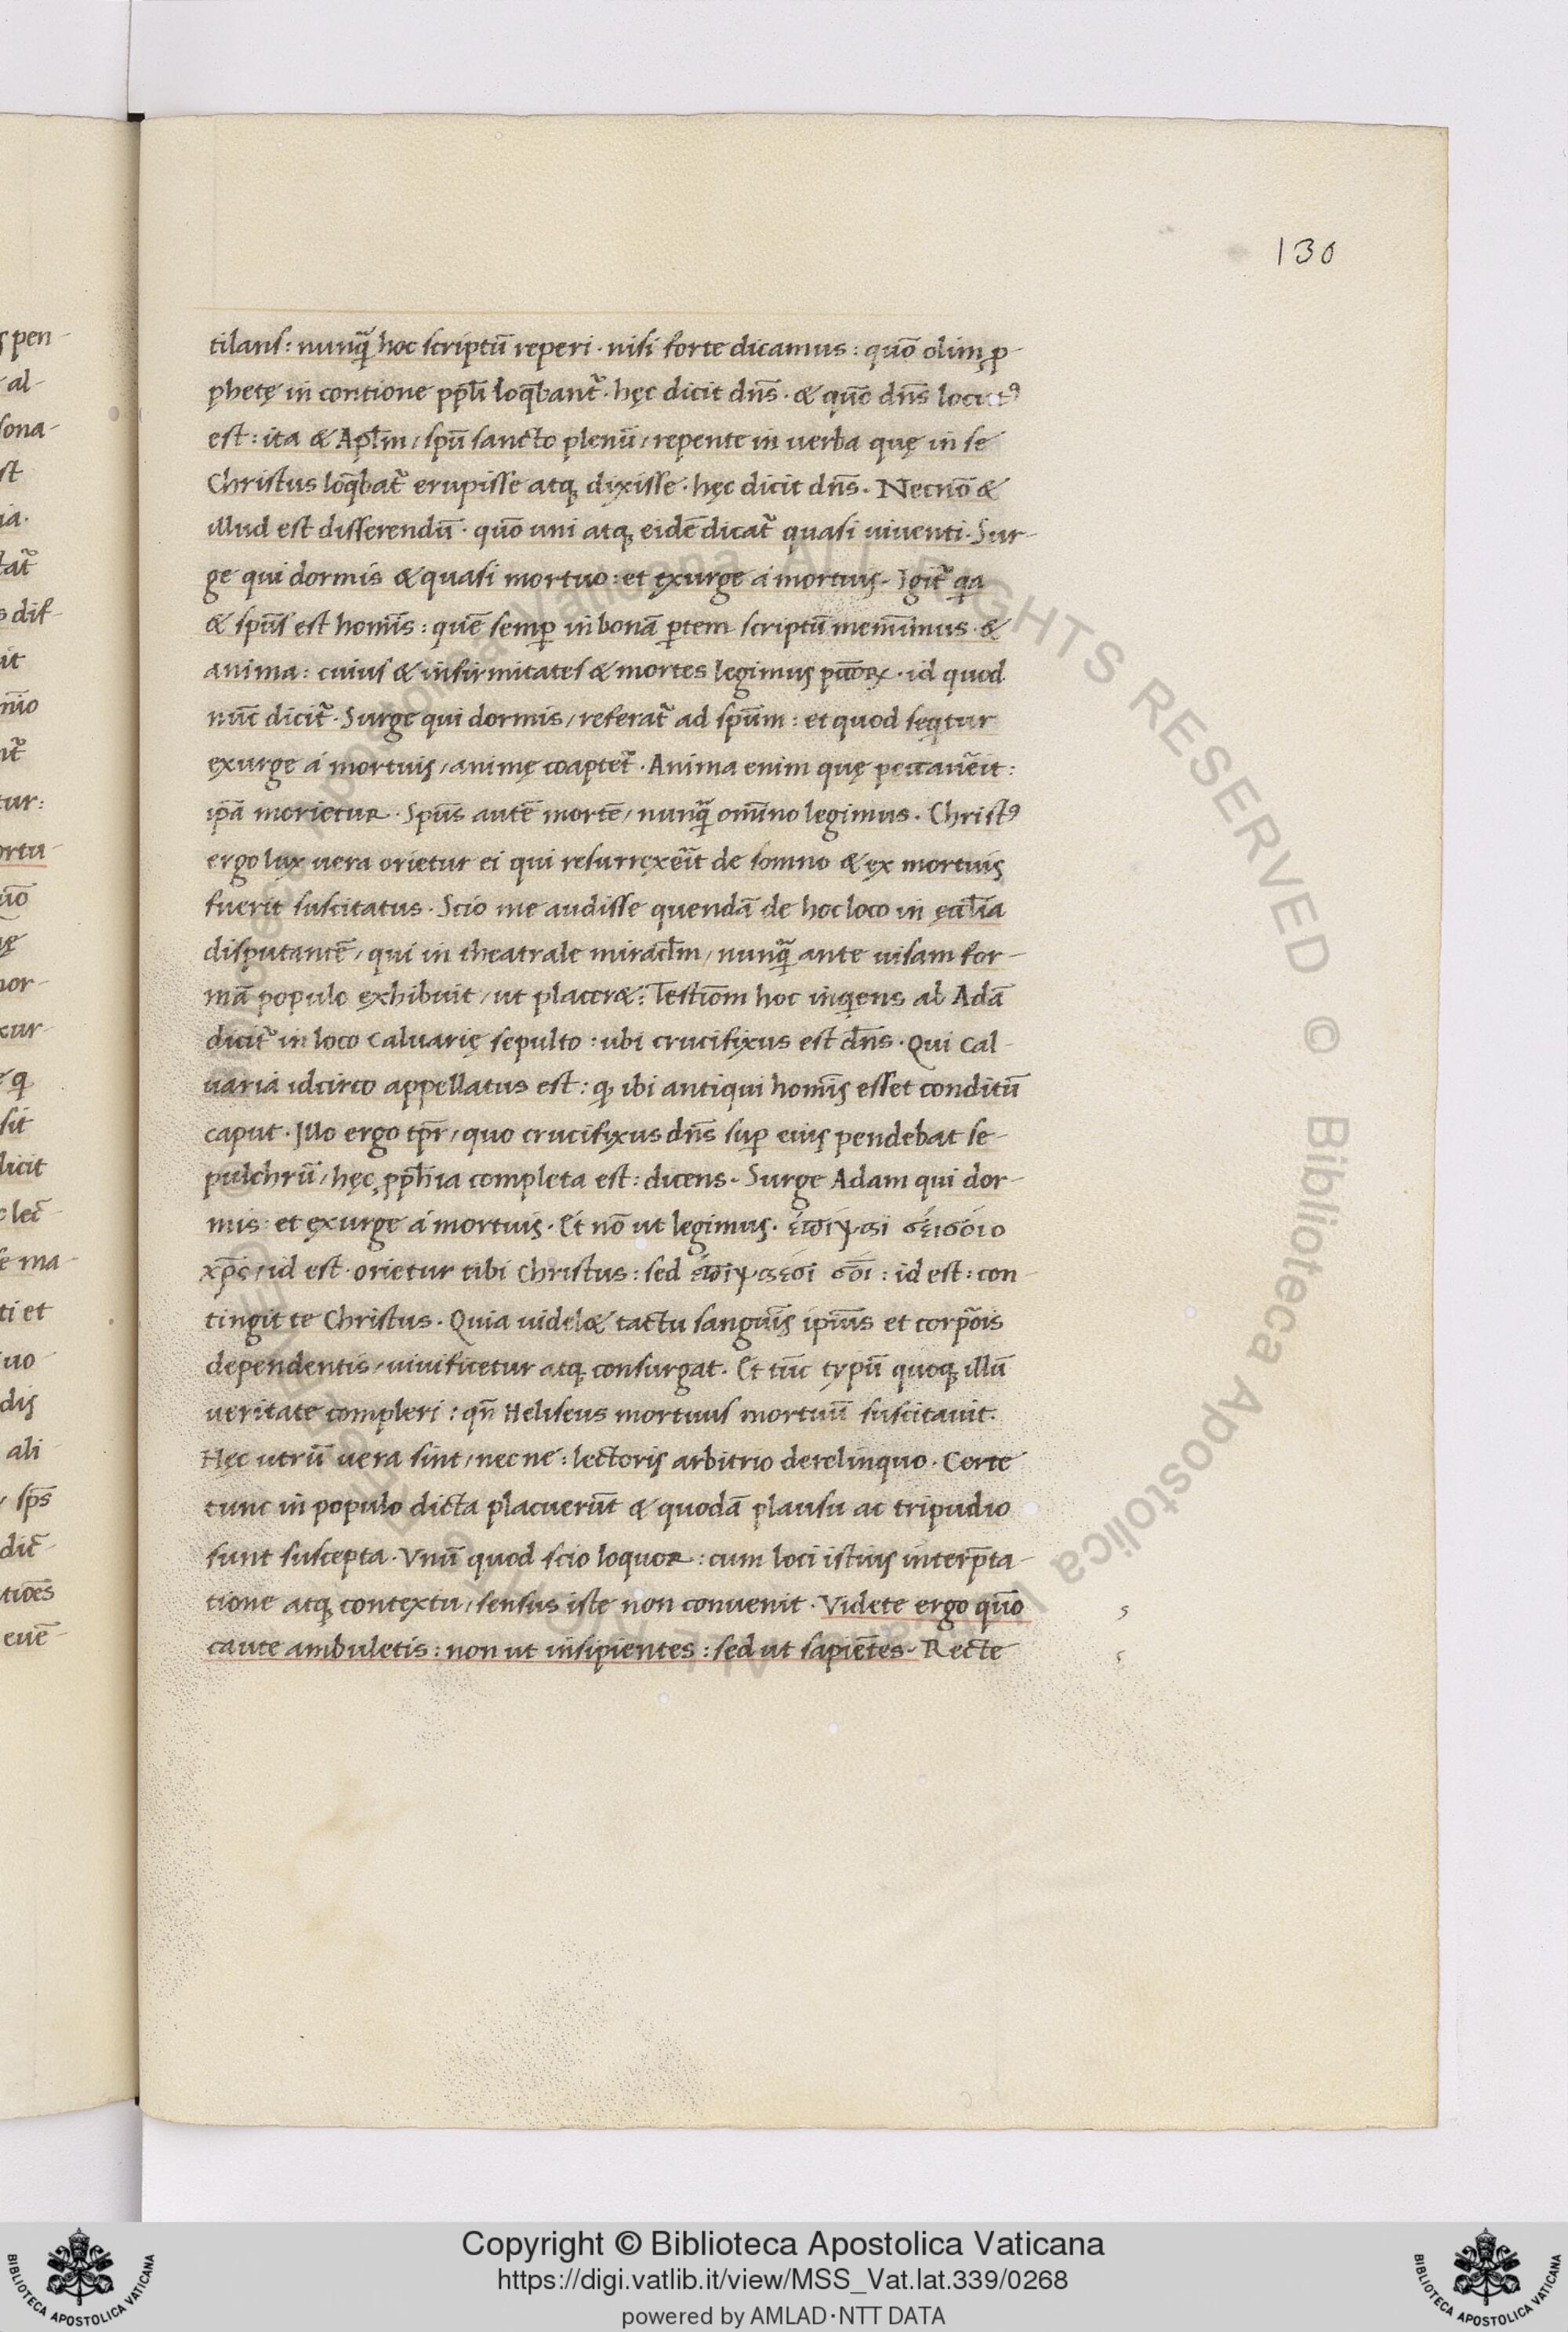 130
tilans: nunq̃ hoc scriptū reperi · nisi forte dicamus: quō olim p̱-
phetę in contione pp̄li loq̄bant̃ · hęc dicit dn̄s · & quō dn̄s locutꝰ
est: ita & Apl̄m / spū sancto plenū / repente in uerba quę in se
Christus loq̄bat̃ erupisse atq; dixisse · hęc dicit dn̄s · Necnō &
illud est disserendū · quō uni atq; eidē dicat̃ quasi uiuenti · Sur-
ge qui dormis & quasi mortuo: et exurge á mortuis · Igit̃ q̃a
& spūs est homīs: quē semꝑ in bonā ꝑtem scriptū memīmus · &
anima: cuius & infirmitates & mortes legimus pc̄orꝝ · id quod
nūc dicit̃ · Surge qui dormis / referat̃ ad spūm: et quod seqtur
exurge á mortuis / animę coaptet̃ · Anima enim quę peccauēit:
ip̄a morietur · Spūs autē mortē / nunq̃ omīno legimus · Christꝰ
ergo lux uera orietur ei qui resurrexēit de somno & ex mortuis
fuerit suscitatus · Scio me audisse quendā de hoc loco in ęccl̄ia
disputantē / qui in theatrale miracl̄m / nunq̃ ante uisam for-
mā populo exhibuit / ut placer&: Testiom̄ hoc inqens ab Adā
dicit̃ in loco Caluarię sepulto: ubi crucifixus est dn̄s · Qui Cal-
uaria idcirco appellatus est: q; ibi antiqui homīs esset conditū
caput · Illo ergo tp̄r / quo crucifixus dn̄s suꝑ eius pendebat se-
pulchrū / hęc p̱ph̄ia completa est: dicens · Surge Adam qui dor-
mis: et exurge á mortuis · Et nō ut legimus ·
xp̄s / id est · orietur tibi Christus: sed : id est: con-
tingit te Christus · Quia uidel& tactu sanguīs ipīus et corpōis
dependentis / uiuificetur atq; consurgat · Et tūc typū quoq; illū
ueritate compleri: qn̄ Heliseus mortuus mortuū suscitauit ·
Hęc utrū uera sint / nec ne: lectoris arbitrio derelinquo · Certe
tunc in populo dicta placuerūt & quodā plausu ac tripudio
sunt suscepta · Vnū quod scio loquor: cum loci istius interp̄ta-
tione atq; contextu / sensus iste non conuenit · Videte ergo quō
caute ambuletis: non ut insipientes: sed ut sapiētes · Recte
Copyright © Biblioteca Apostolica Vaticana
https://digi.vatlib.it/view/MSS_Vat.lat.339/0268
powered by AMLAD·NTT DATA